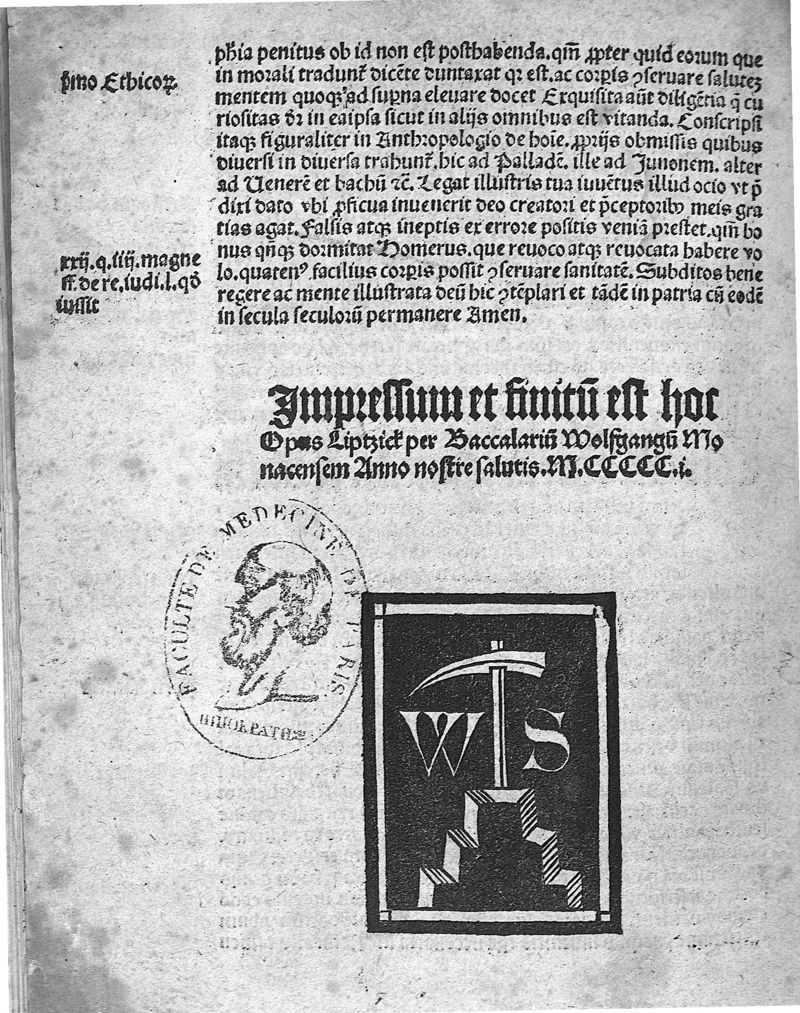 pħia penitus ob id non est posthabenda. qm̄ ꝓpter quid eorum que
in morali tradunt᷑ dicēte duntaxat qꝛ est. ac corꝑis ꝯseruare salutez
mentem quoqꝫ ad suꝑna eleuare docet Exquisita aūt diligētia q̄ cu
riositas dꝛ in eaipsa sicut in alijs omnibus est vitanda. Conscripsi
itaqꝫ figuraliter in Anthropologio de hoīe. ꝓprijs obmissis quibus
diuersi in diuersa trahunt᷑. hic ad Palladē. ille ad Junonem. alter
ad Uenerē et bachū ⁊c̄. Legat illustris tua iuuētus illud ocio vt p̄
dixi dato vbi ꝓficua inuenerit deo creatori et p̄ceptoribꝰ meis gra
tias agat. Falsis atqꝫ ineptis ex errore positis veniā prestet. qm̄ bo
nus qn̄qꝫ dormitat Homerus. que reuoco atqꝫ reuocata habere vo
lo. quatenꝰ facilius corꝑis possit ꝯseruare sanitatē. Subditos bene
regere ac mente illustrata deū hic ꝯtēplari et tādē in patria cū eodē
in secula seculorū permanere Amen.
p̄mo Ethicoꝝ
xxij. q. iiij. magne
ff. de re. iudi. l. qd̄
iussit
Impressum et finitū est hoc
Opus Liptzick per Baccalariū Wolfgangū Mo
nacensem Anno nostre salutis. M.CCCCC.i.
FACULTE DE MEDECINE DE PARIS
ΙΠΠΟΚΡΑΤΗΣ
W S